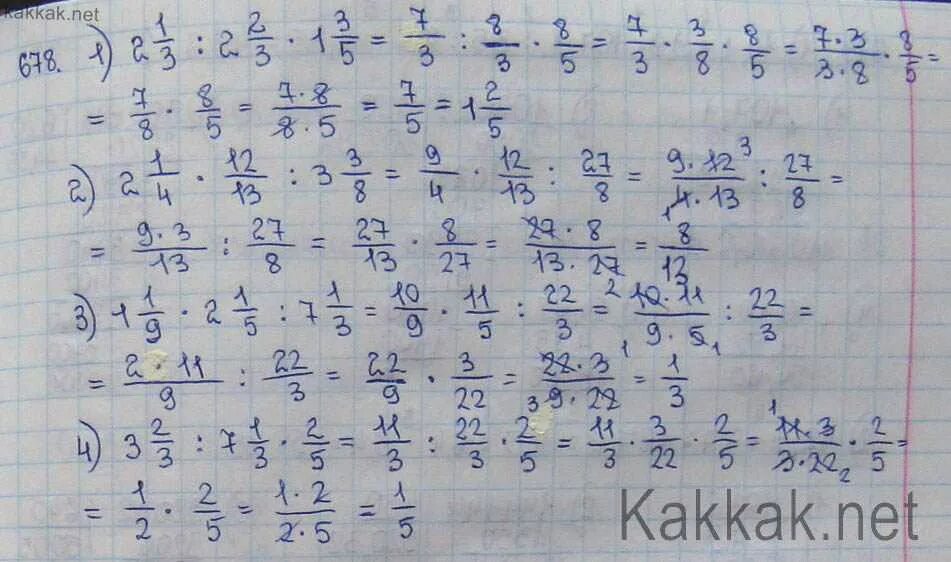 kakkak.net
678. 1) 2 1/3 : 2 2/3 · 1 3/5 = 7/3 : 8/3 · 8/5 = 7/3 · 3/8 · 8/5 = 7·3/3·8 · 8/5 =
= 7/8 · 8/5 = 7·8/8·5 = 7/5 = 1 2/5
2) 2 1/4 · 12/13 : 3 3/8 = 9/4 · 12/13 : 27/8 = 9·12 3/1 4·13 : 27/8 =
= 9·3/13 : 27/8 = 27/13 · 8/27 = 27·8/13·27 = 8/13
3) 1 1/9 · 2 1/5 : 7 1/3 = 10/9 · 11/5 : 22/3 = 2 10·11/9·5 1 : 22/3 =
= 2·11/9 : 22/3 = 22/9 · 3/22 = 22·3 1/3 9·22 = 1/3
4) 3 2/3 : 7 1/3 · 2/5 = 11/3 : 22/3 · 2/5 = 11/3 · 3/22 · 2/5 = 1 11·3/3·22 2 · 2/5 =
= 1/2 · 2/5 = 1·2/2·5 = 1/5
Kakkak.net